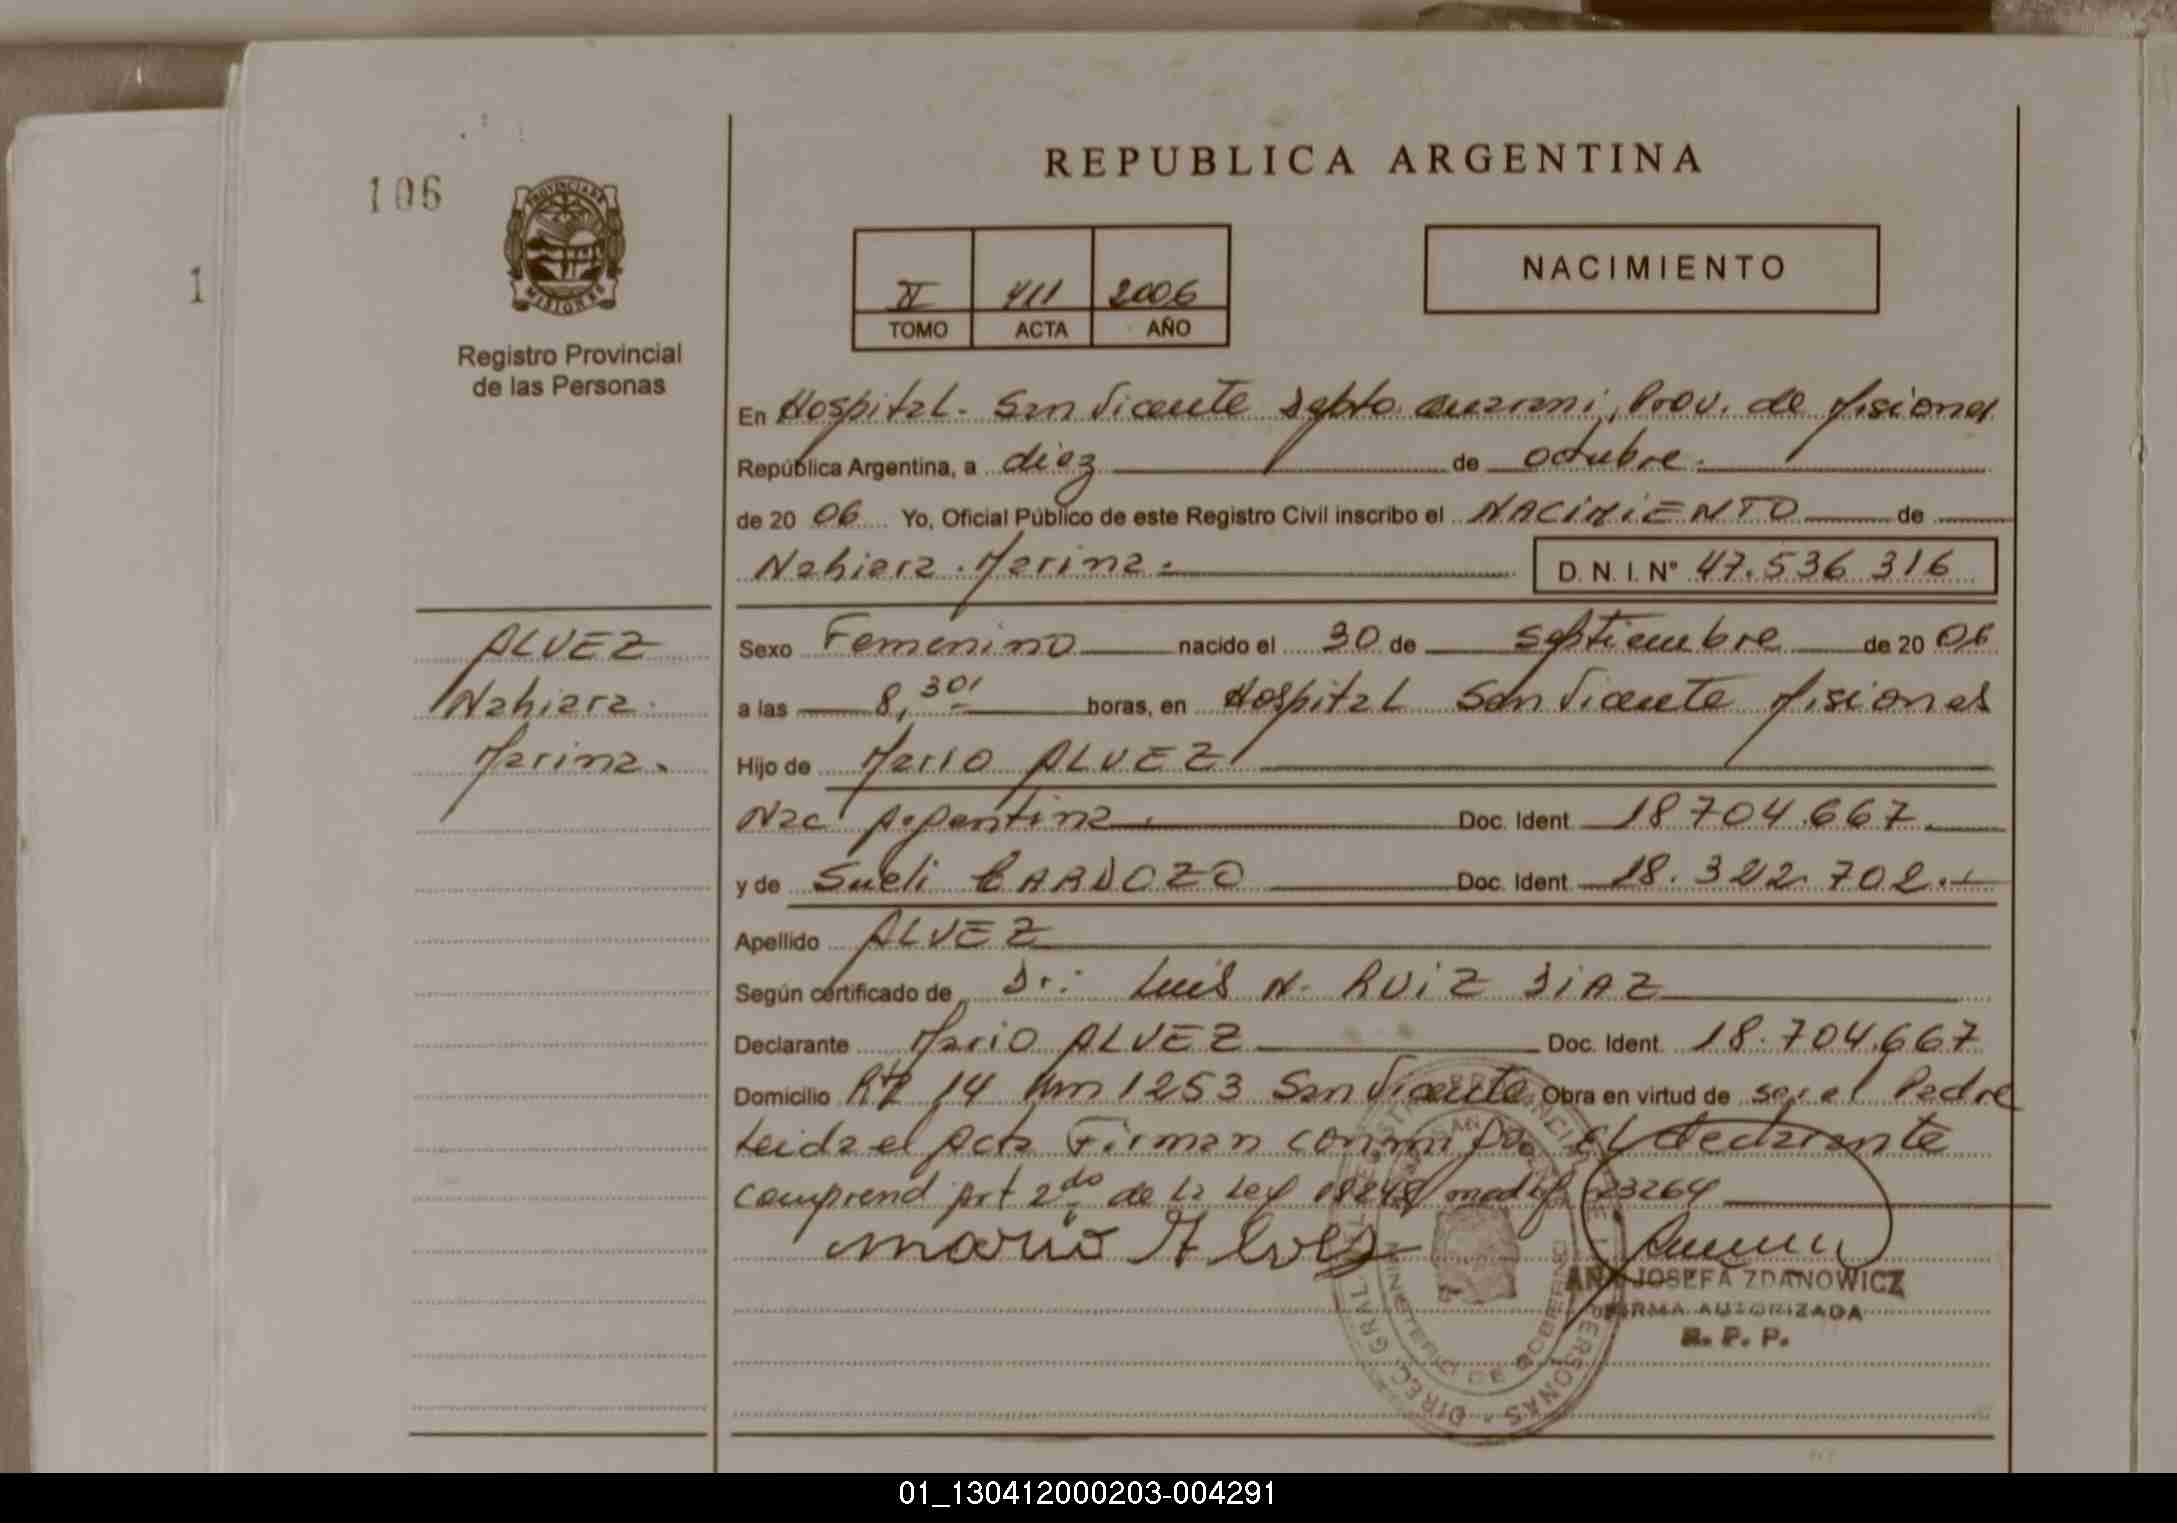 106
1
PROVINCIA DE
MISIONES
Registro Provincial
de las Personas
REPUBLICA ARGENTINA
II 411 2006
TOMO ACTA AÑO
NACIMIENTO
En Hospital San Vicente Depto Guarani, Prov. de Misiones
República Argentina, a diez de octubre
de 20 06 Yo, Oficial Público de este Registro Civil inscribo el NACIMIENTO de
Nahiara Marina D. N. I. N° 47.536 316
ALVEZ
Nahiara
Marina
Sexo Femenino nacido el 30 de Septiembre de 20 06
a las 8,30' horas, en Hospital San Vicente Misiones
Hijo de Mario ALVEZ
Nac Argentina Doc. Ident 18 704.667
y de Sueli CARDOZO Doc. Ident 18.322.702
Apellido ALVEZ
Según certificado de Dr: Luis N. RUIZ DIAZ
Declarante Mario ALVEZ Doc. Ident. 18.704.667
Domicilio Rta 14 Km 1253 San Vicente Obra en virtud de ser el Padre
Leida el Acta Firman conmigo El declarante
comprend Art 2do de la Ley 18248 modif 23264
mario Alves
ANA JOSEFA ZDANOWICZ
FIRMA AUTORIZADA
R. P. P.
MINISTERIO DE GOBIERNO
01_130412000203-004291